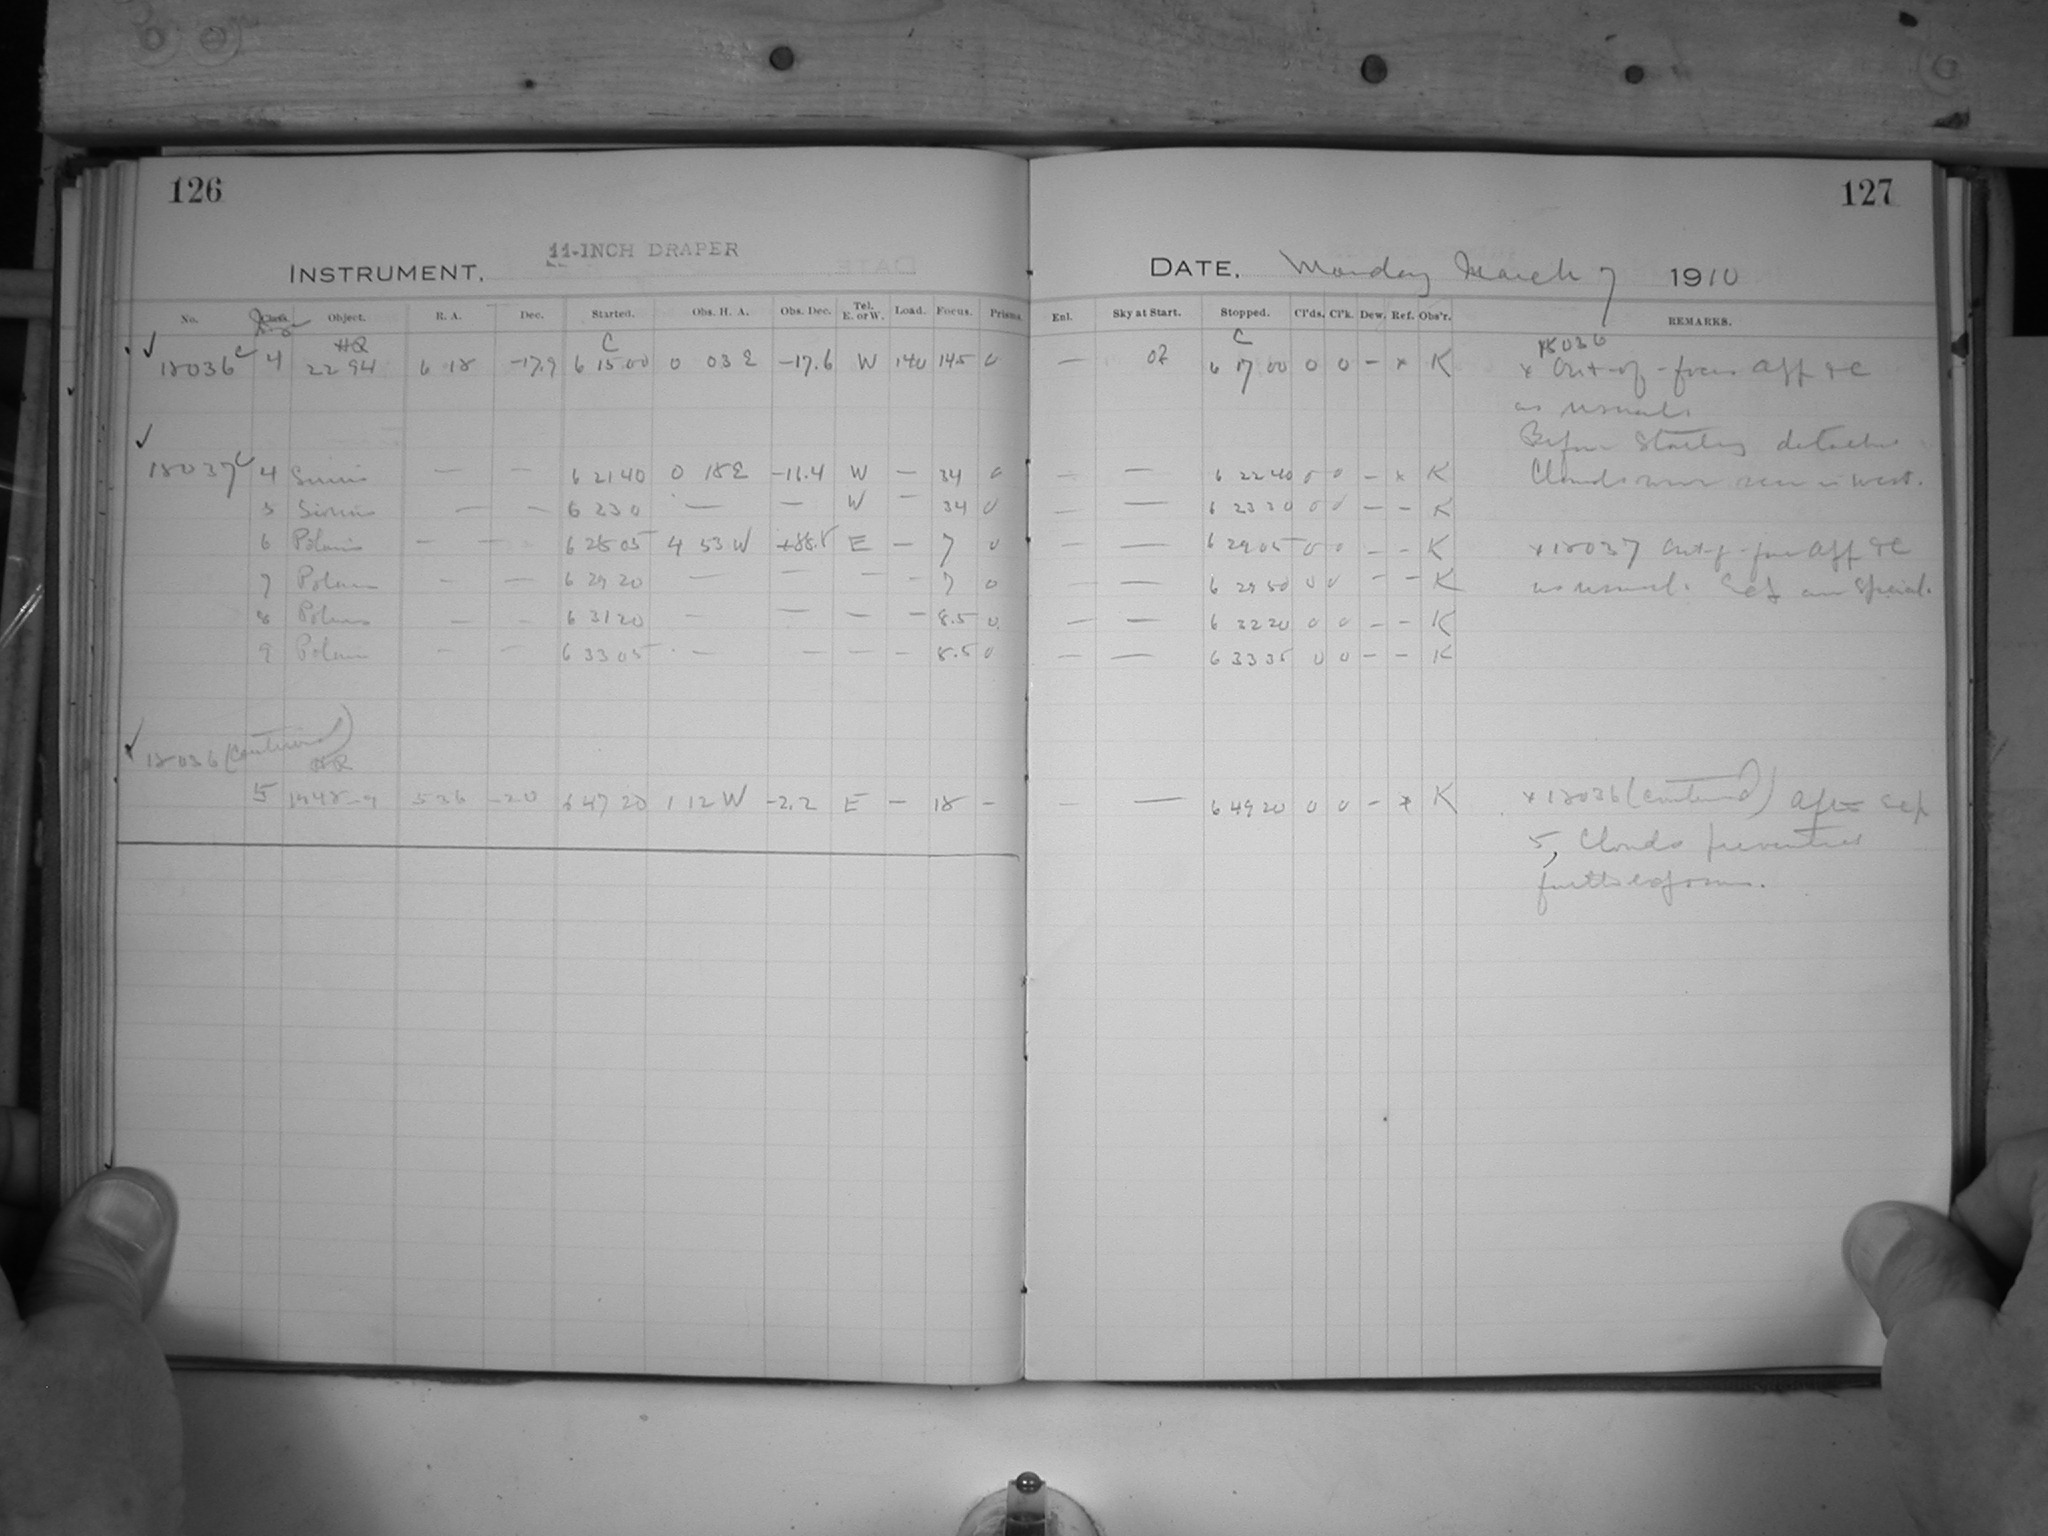 126
127
11-INCH DRAPER
INSTRUMENT.
DATE. Monday March 7 1910
No. Object. R. A. Dec. Started. Obs. H. A. Obs. Dec. Tel. E. or W. Load. Focus. Prisms.
Enl. Sky at Start. Stopped. Cl'ds. Cl'k. Dew. Ref. Obs'r. REMARKS.
HR C C 18036
18036 c 4 2294 6 18 -17.9 6 15 00 0 03 E -17.6 W 140 145 0 — 02 6 17 00 0 0 - x K x Out-of-focus Aff + C
as usual.
Before Starting detached
18037 c 4 Sirius — — 6 21 40 0 18 E -16.4 W — 34 0 — — 6 22 40 0 0 - x K Clouds were seen in west.
5 Sirius — — 6 23 0 — — W — 34 0 — — 6 23 30 0 0 - - K
6 Polaris — — 6 28 05 4 53 W +88.8 E — 7 0 — — 6 29 05 0 0 - - K x 18037 Out-of-focus Aff + C
7 Polaris — — 6 29 20 — — — — 7 0 — — 6 29 50 0 0 - - K as usual.
8 Polaris — — 6 31 20 — — — — 8.5 0 — — 6 32 20 0 0 - - K
9 Polaris — — 6 33 05 — — — — 8.5 0 — — 6 33 35 0 0 - - K
18036 (Continued)
HR
5 1948-9 5 36 -2.0 6 47 20 1 12 W -2.2 E — 18 - — — 6 49 20 0 0 - x K x 18036 (Continued) After Exp
5, Clouds prevented